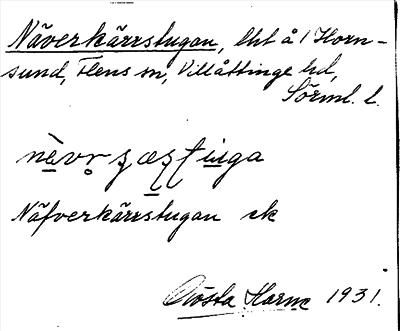 Näverkärrstugan, lht å 1 Horn-
sund, Flens sn, Villåttinge hd,
Sörml. l.
Näfverkärrstugan ek
Gösta Harne 1931.